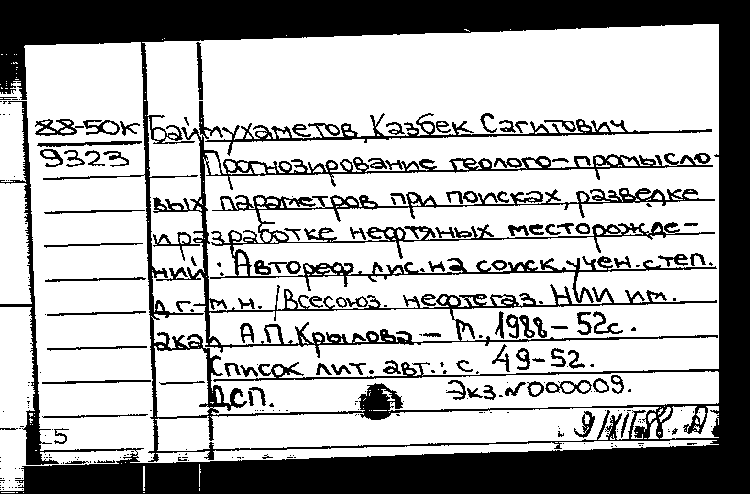 88-50к Баймухаметов, Казбек Сагитович.
9323 Прогнозирование геолого-промысло-
вых параметров при поисках, разведке
и разработке нефтяных месторожде-
ний : Автореф. дис. на соиск. учен. степ.
д.г.-м.н. / Всесоюз. нефтегаз. НИИ им.
акад. А.П. Крылова. - М., 1988 - 52с.
Список лит. авт.: с. 49-52.
ДСП. Экз. N 000009.
5 9/XII-88.